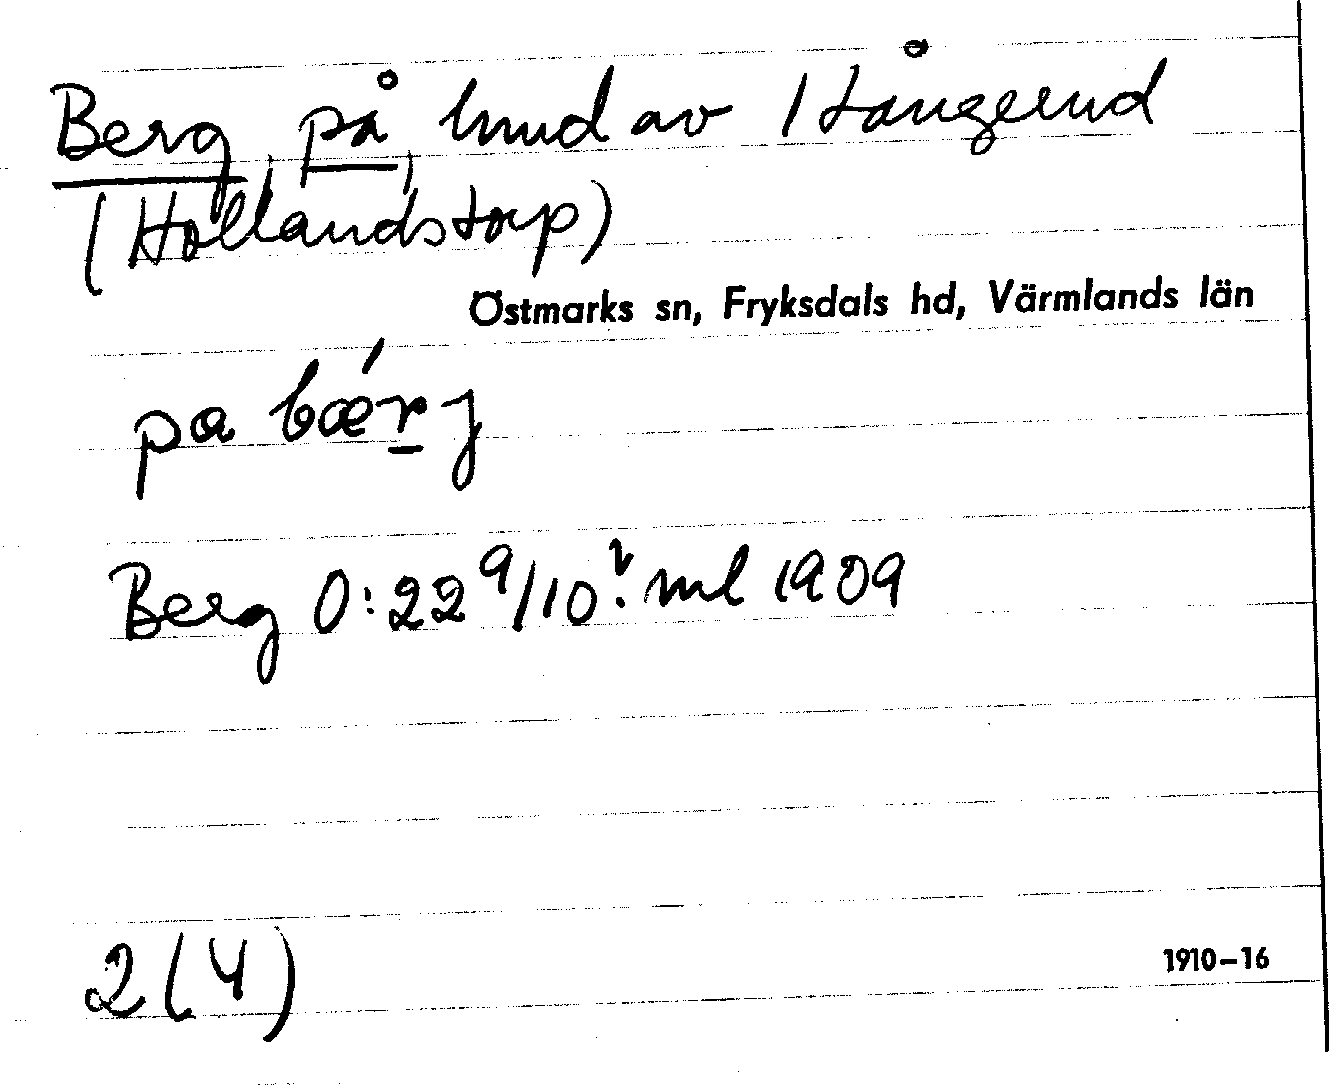 Berg, på, hmd av 1 Långerud
(Hollandstorp)
Östmarks sn, Fryksdals hd, Värmlands län
pa bæŕ̲j
Berg 0:22 9/10? ml 1909
2(4)
1910–16